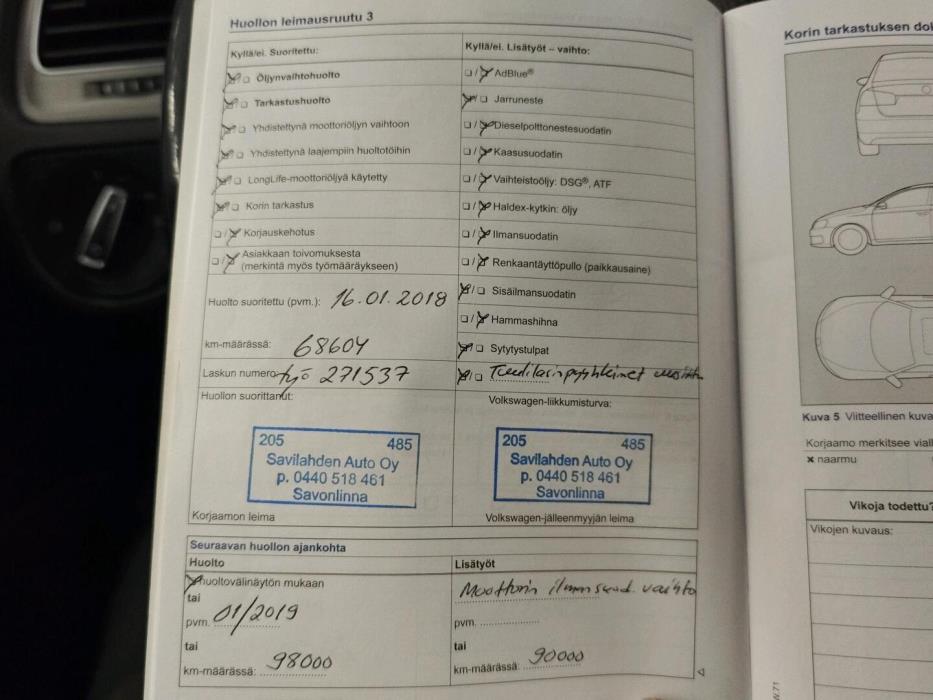 Huollon leimausruutu 3
Kyllä/ei. Suoritettu:
Öljynvaihtohuolto
Tarkastushuolto
Yhdistettynä moottoriöljyn vaihtoon
Yhdistettynä laajempiin huoltotöihin
LongLife-moottoriöljyä käytetty
Korin tarkastus
Korjauskehotus
Asiakkaan toivomuksesta
(merkintä myös työmääräykseen)
Huolto suoritettu (pvm.): 16.01.2018
km-määrässä: 68604
Laskun numero: työ 271537
Huollon suorittanut:
205 485
Savilahden Auto Oy
p. 0440 518 461
Savonlinna
Korjaamon leima
Kyllä/ei. Lisätyöt – vaihto:
AdBlue®
Jarruneste
Dieselpolttonestesuodatin
Kaasusuodatin
Vaihteistoöljy: DSG®, ATF
Haldex-kytkin: öljy
Ilmansuodatin
Renkaantäyttöpullo (paikkausaine)
Sisäilmansuodatin
Hammashihna
Sytytystulpat
Tuulilasinpyyhkimet
Volkswagen-liikkumisturva:
205 485
Savilahden Auto Oy
p. 0440 518 461
Savonlinna
Volkswagen-jälleenmyyjän leima
Seuraavan huollon ajankohta
Huolto
huoltovälinäytön mukaan
tai
pvm. 01/2019
tai
km-määrässä: 98000
Lisätyöt
Moottorin ilmansuod. vaihto
pvm.
tai
km-määrässä: 90000
Korin tarkastuksen
Kuva 5 Viitteellinen kuva
Korjaamo merkitsee
x naarmu
Vikoja todettu?
Vikojen kuvaus: